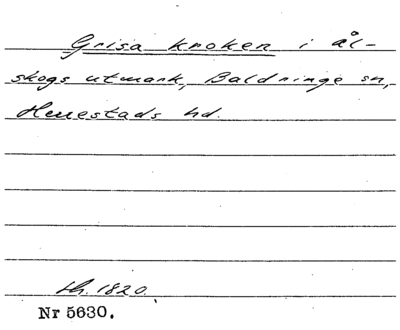 Grisa kroken i ål-
skogs utmark, Baldringe sn,
Herrestads hd.
th. 1820.
Nr 5630.